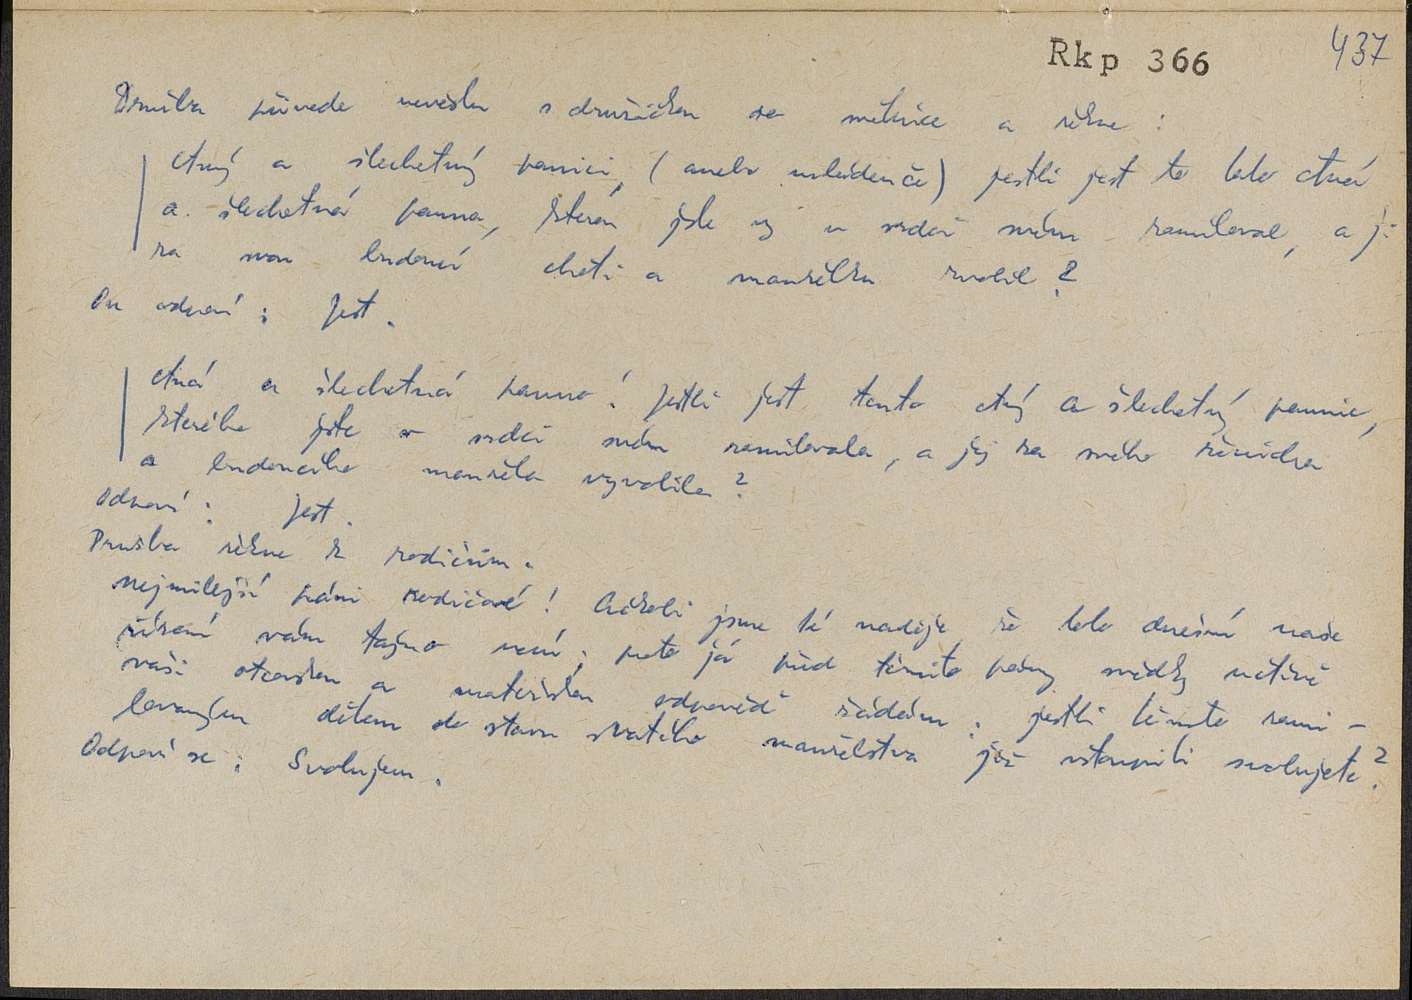 Rkp 366
437
Družba přivede nevěstu s družičkou ze světnice a řekne :
ctný a šlechetný panici, (anebo mládenče) jestli jest to tato ctná
a šlechetná panna, kterou jste vy v srdci svém zamiloval, a ji
za svou budoucí choti a manželku zvolil ?
On odpoví : Jest.
ctná a šlechetná panno ! Jestli jest tento ctný a šlechetný panic,
kterého jste v srdci svém zamilovala, a jej za svého ženicha
a budoucího manžela vyvolila ?
Odpoví : Jest.
Družba řekne k rodičům.
nejmilejší páni rodičové ! Ačkoli jsme té naděje, že toto dnešní naše
řízení vám tajno není ; proto já před těmito pány svědky uctivě
vaši otcovskou a mateřskou odpověď žádám : jestli těmto zami-
lovaným dětem do stavu svatého manželstva již vstoupiti svolujete ?
Odpoví se : Svolujem.